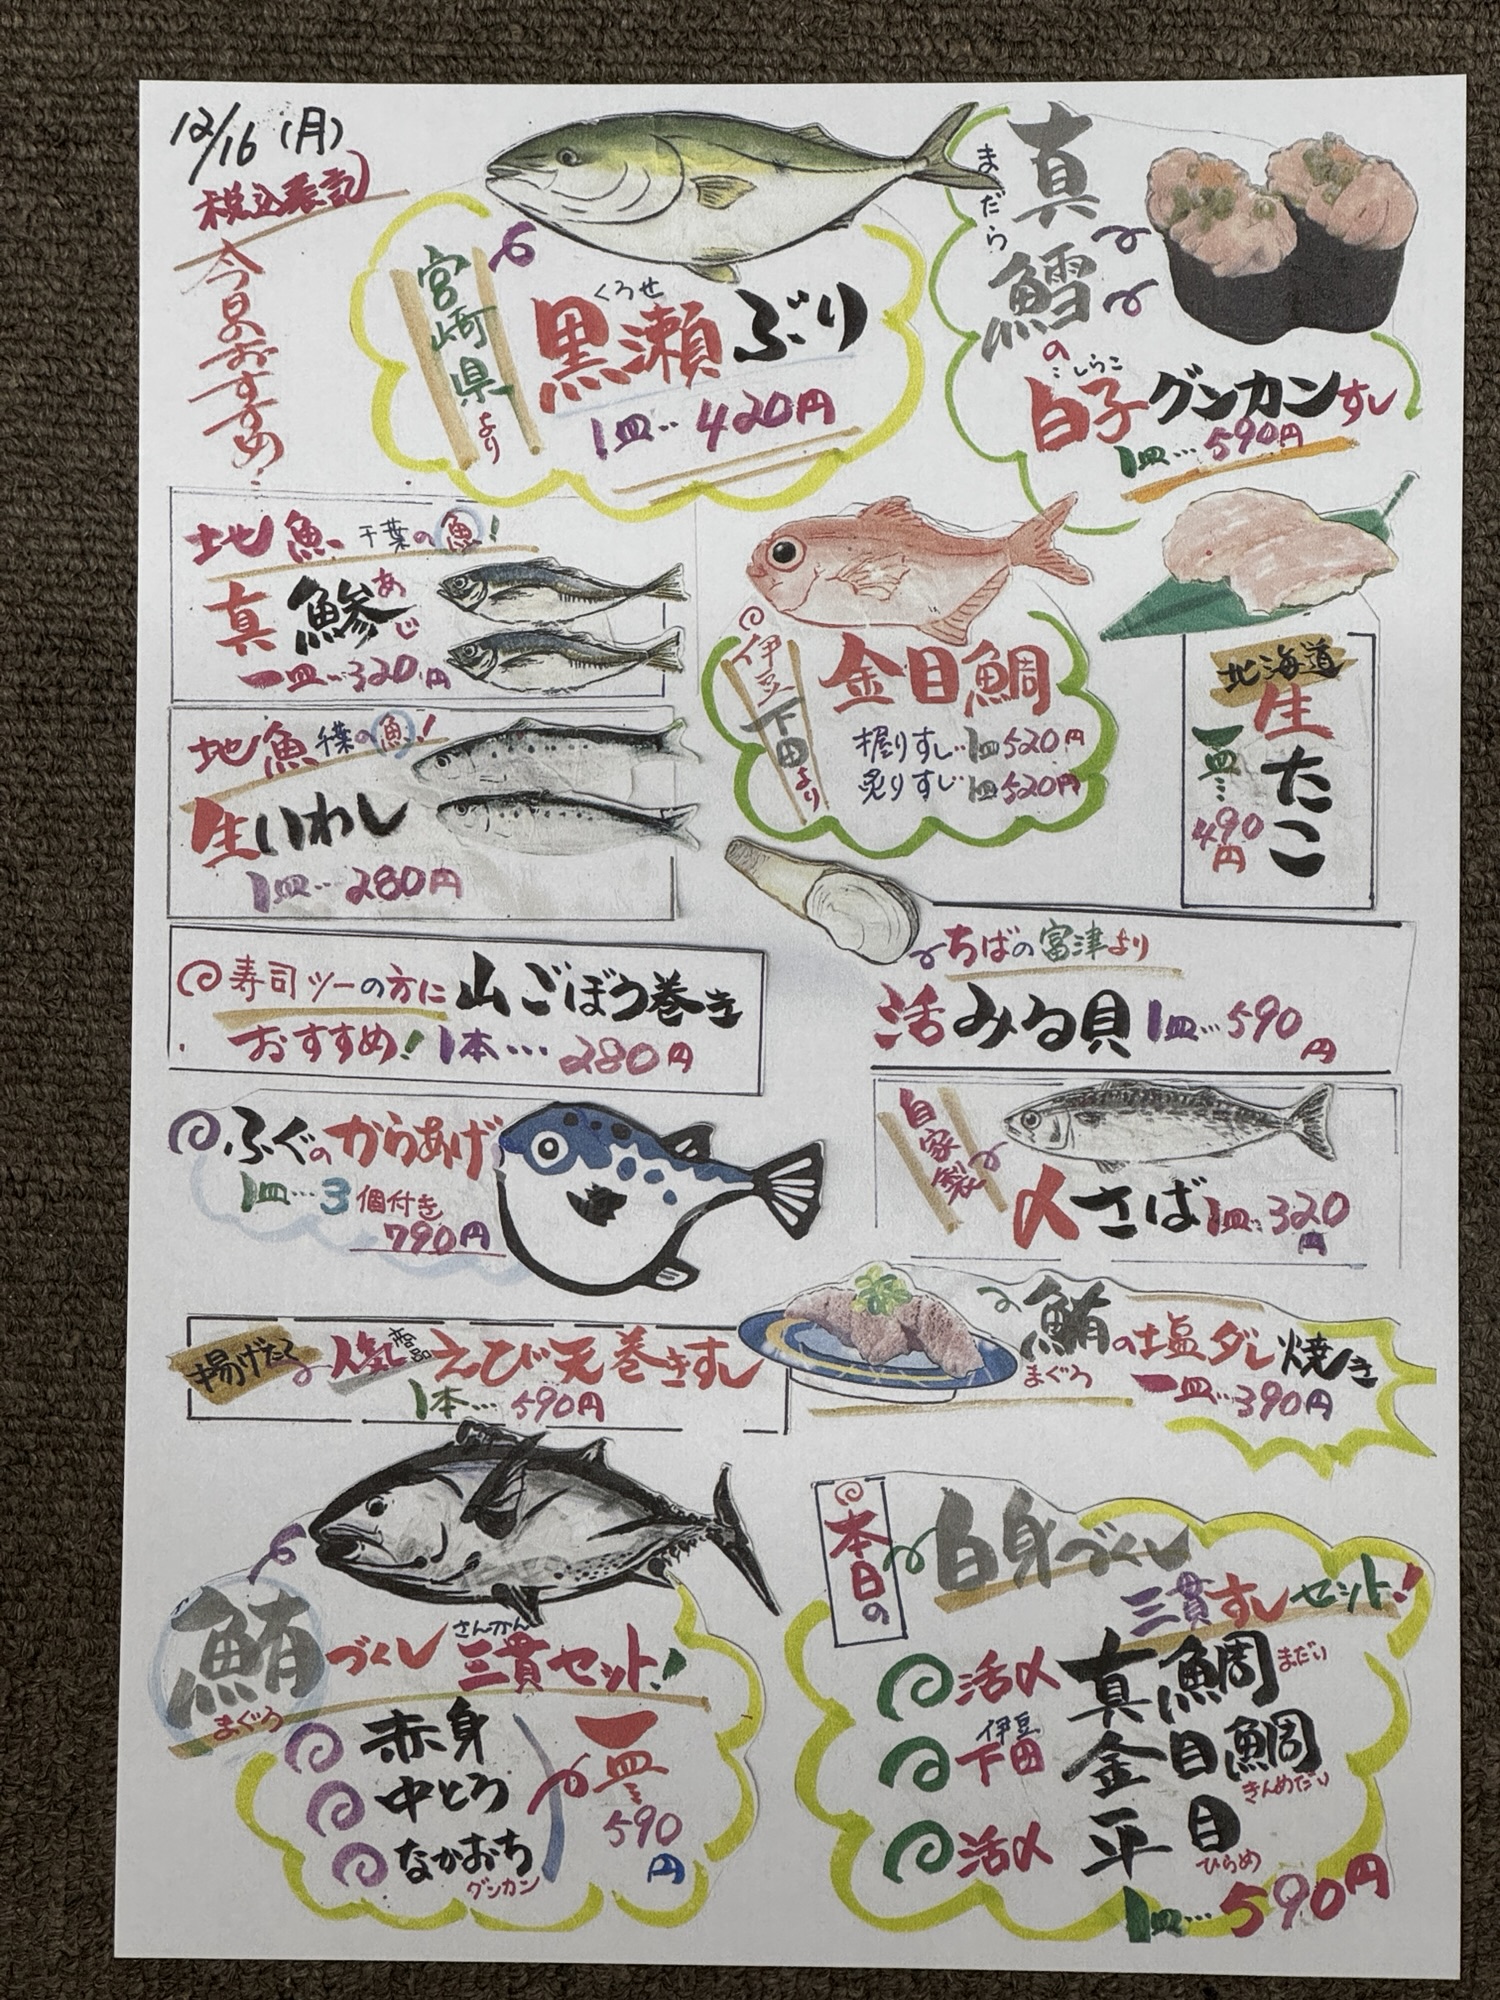 12/16(月)
税込表記
今日のおすすめ!
宮崎県より
くろせ
黒瀬ぶり
1皿…420円
まだら
真鱈の
しらこ
白子グンカンすし
1皿…590円
地魚 千葉の魚!
真鯵
あじ
一皿…320円
地魚 千葉の魚!
生いわし
1皿…280円
伊豆下田より
金目鯛
握りすし…1皿520円
炙りすし…1皿520円
北海道
生たこ
一皿…490円
寿司ツーの方に
山ごぼう巻き
おすすめ! 1本…280円
ちばの富津より
活みる貝 1皿…590円
ふぐのからあげ
1皿…3個付き
790円
自家製
〆さば 1皿…320円
揚げたて 人気商品 えび天巻きすし
1本…590円
鮪の塩ダレ焼き
まぐろ
一皿…390円
鮪づくし
まぐろ
さんかん
三貫セット!
赤身
中とろ
なかおち
グンカン
一皿…590円
本日の
白身づくし
三貫すしセット!
活〆 真鯛 まだい
伊豆
下田 金目鯛
きんめだい
活〆 平目
ひらめ
1皿…590円